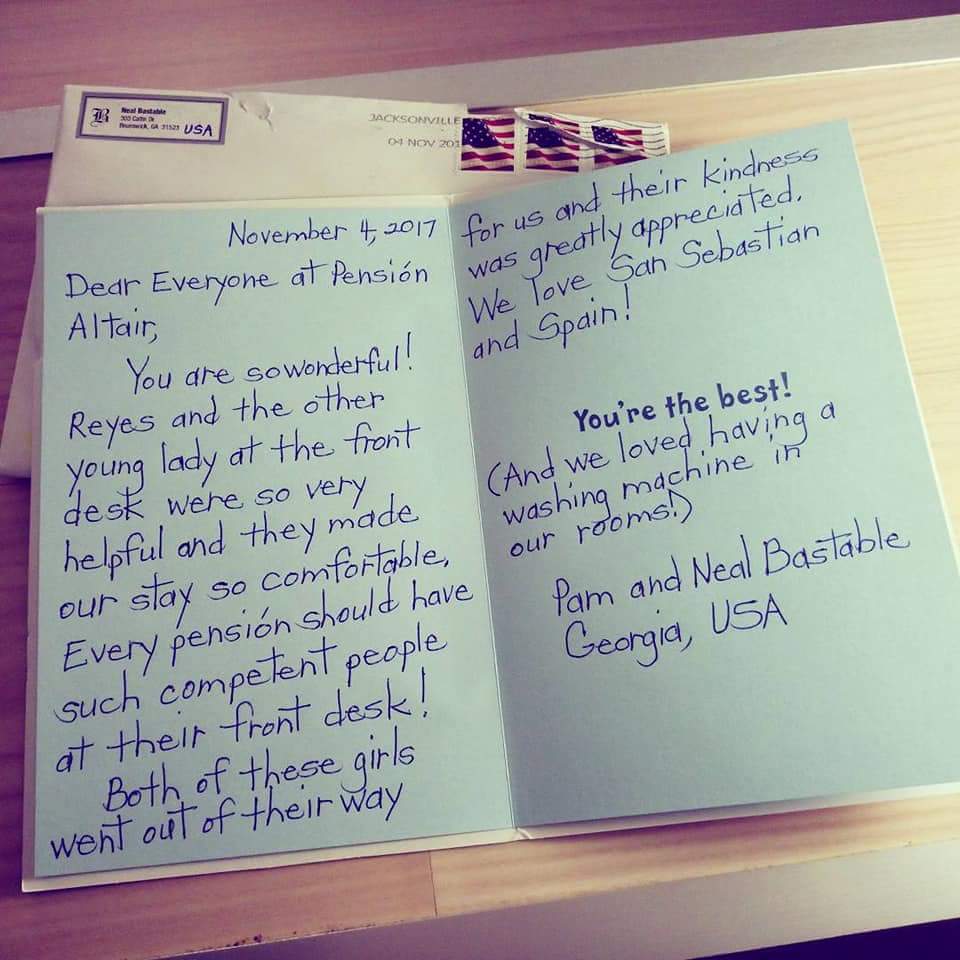 B
Neal Bastable
Brunswick, GA 31523 USA
JACKSONVILLE
04 NOV 201
November 4, 2017
Dear Everyone at Pensión
Altair,
You are so wonderful!
Reyes and the other
young lady at the front
desk were so very
helpful and they made
our stay so comfortable.
Every pensión should have
such competent people
at their front desk!
Both of these girls
went out of their way
for us and their kindness
was greatly appreciated.
We love San Sebastian
and Spain!
You're the best!
(And we loved having a
washing machine in
our rooms!)
Pam and Neal Bastable
Georgia, USA